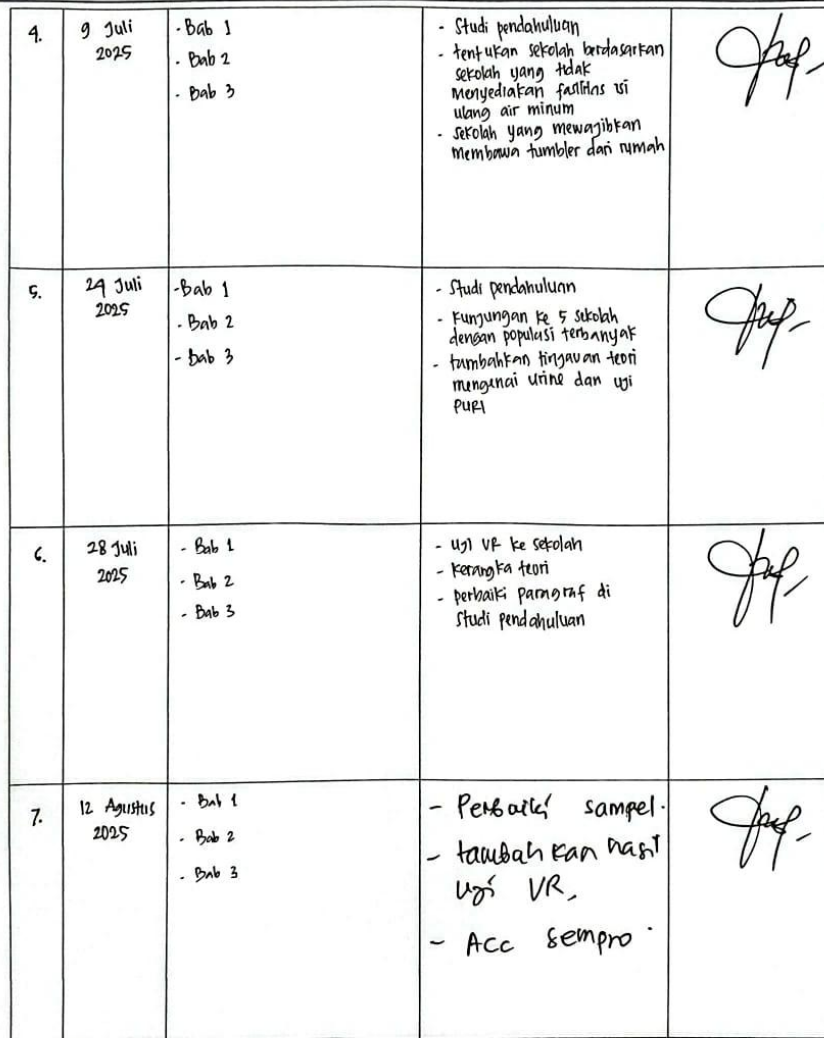 4.
9 Juli
2025
- Bab 1
- Bab 2
- Bab 3
- Studi pendahuluan
- tentukan sekolah berdasarkan
sekolah yang tidak
Menyediakan fasilitas isi
ulang air minum
- sekolah yang mewajibkan
membawa tumbler dari rumah
5.
24 Juli
2025
- Bab 1
- Bab 2
- Bab 3
- Studi pendahuluan
- kunjungan ke 5 sekolah
dengan populasi terbanyak
- tambahkan tinjauan teori
mengenai urine dan uji
PURI
6.
28 Juli
2025
- Bab 1
- Bab 2
- Bab 3
- uji VR ke sekolah
- kerangka teori
- perbaiki paragraf di
Studi pendahuluan
7.
12 Agustus
2025
- Bab 1
- Bab 2
- Bab 3
- Perbaiki sampel.
- tambahkan hasil
uji VR,
- Acc sempro.